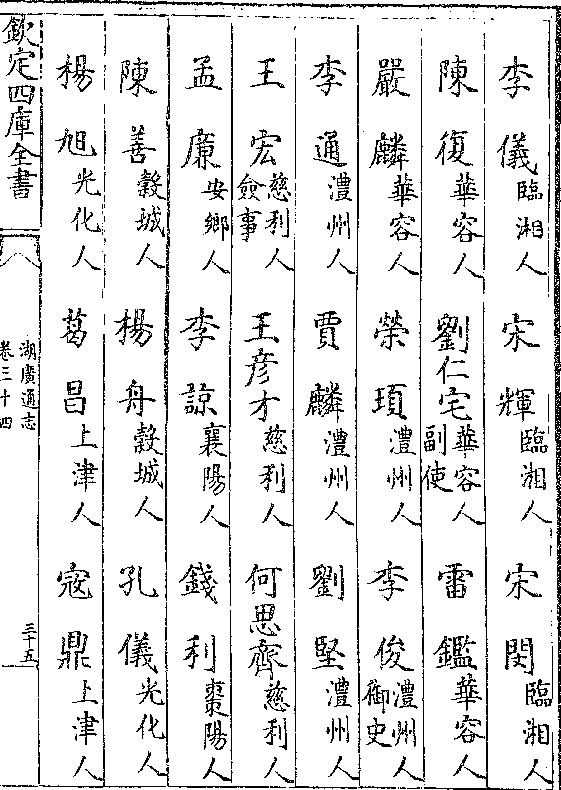 李儀臨湘人 宋輝臨湘人 宋閔臨湘人
陳復華容人 劉仁宅華容人副使 雷鑑華容人
嚴麟華容人 榮頊澧州人 李俊澧州人御史
李通澧州人 賈麟澧州人 劉堅澧州人
王宏慈利人僉事 王彦才慈利人 何思齊慈利人
孟廉安鄉人 李諒襄陽人 錢利棗陽人
陳善穀城人 楊舟穀城人 孔儀光化人
楊旭光化人 葛昌上津人 寇鼎上津人
欽定四庫全書
湖廣通志
卷三十四
三十五